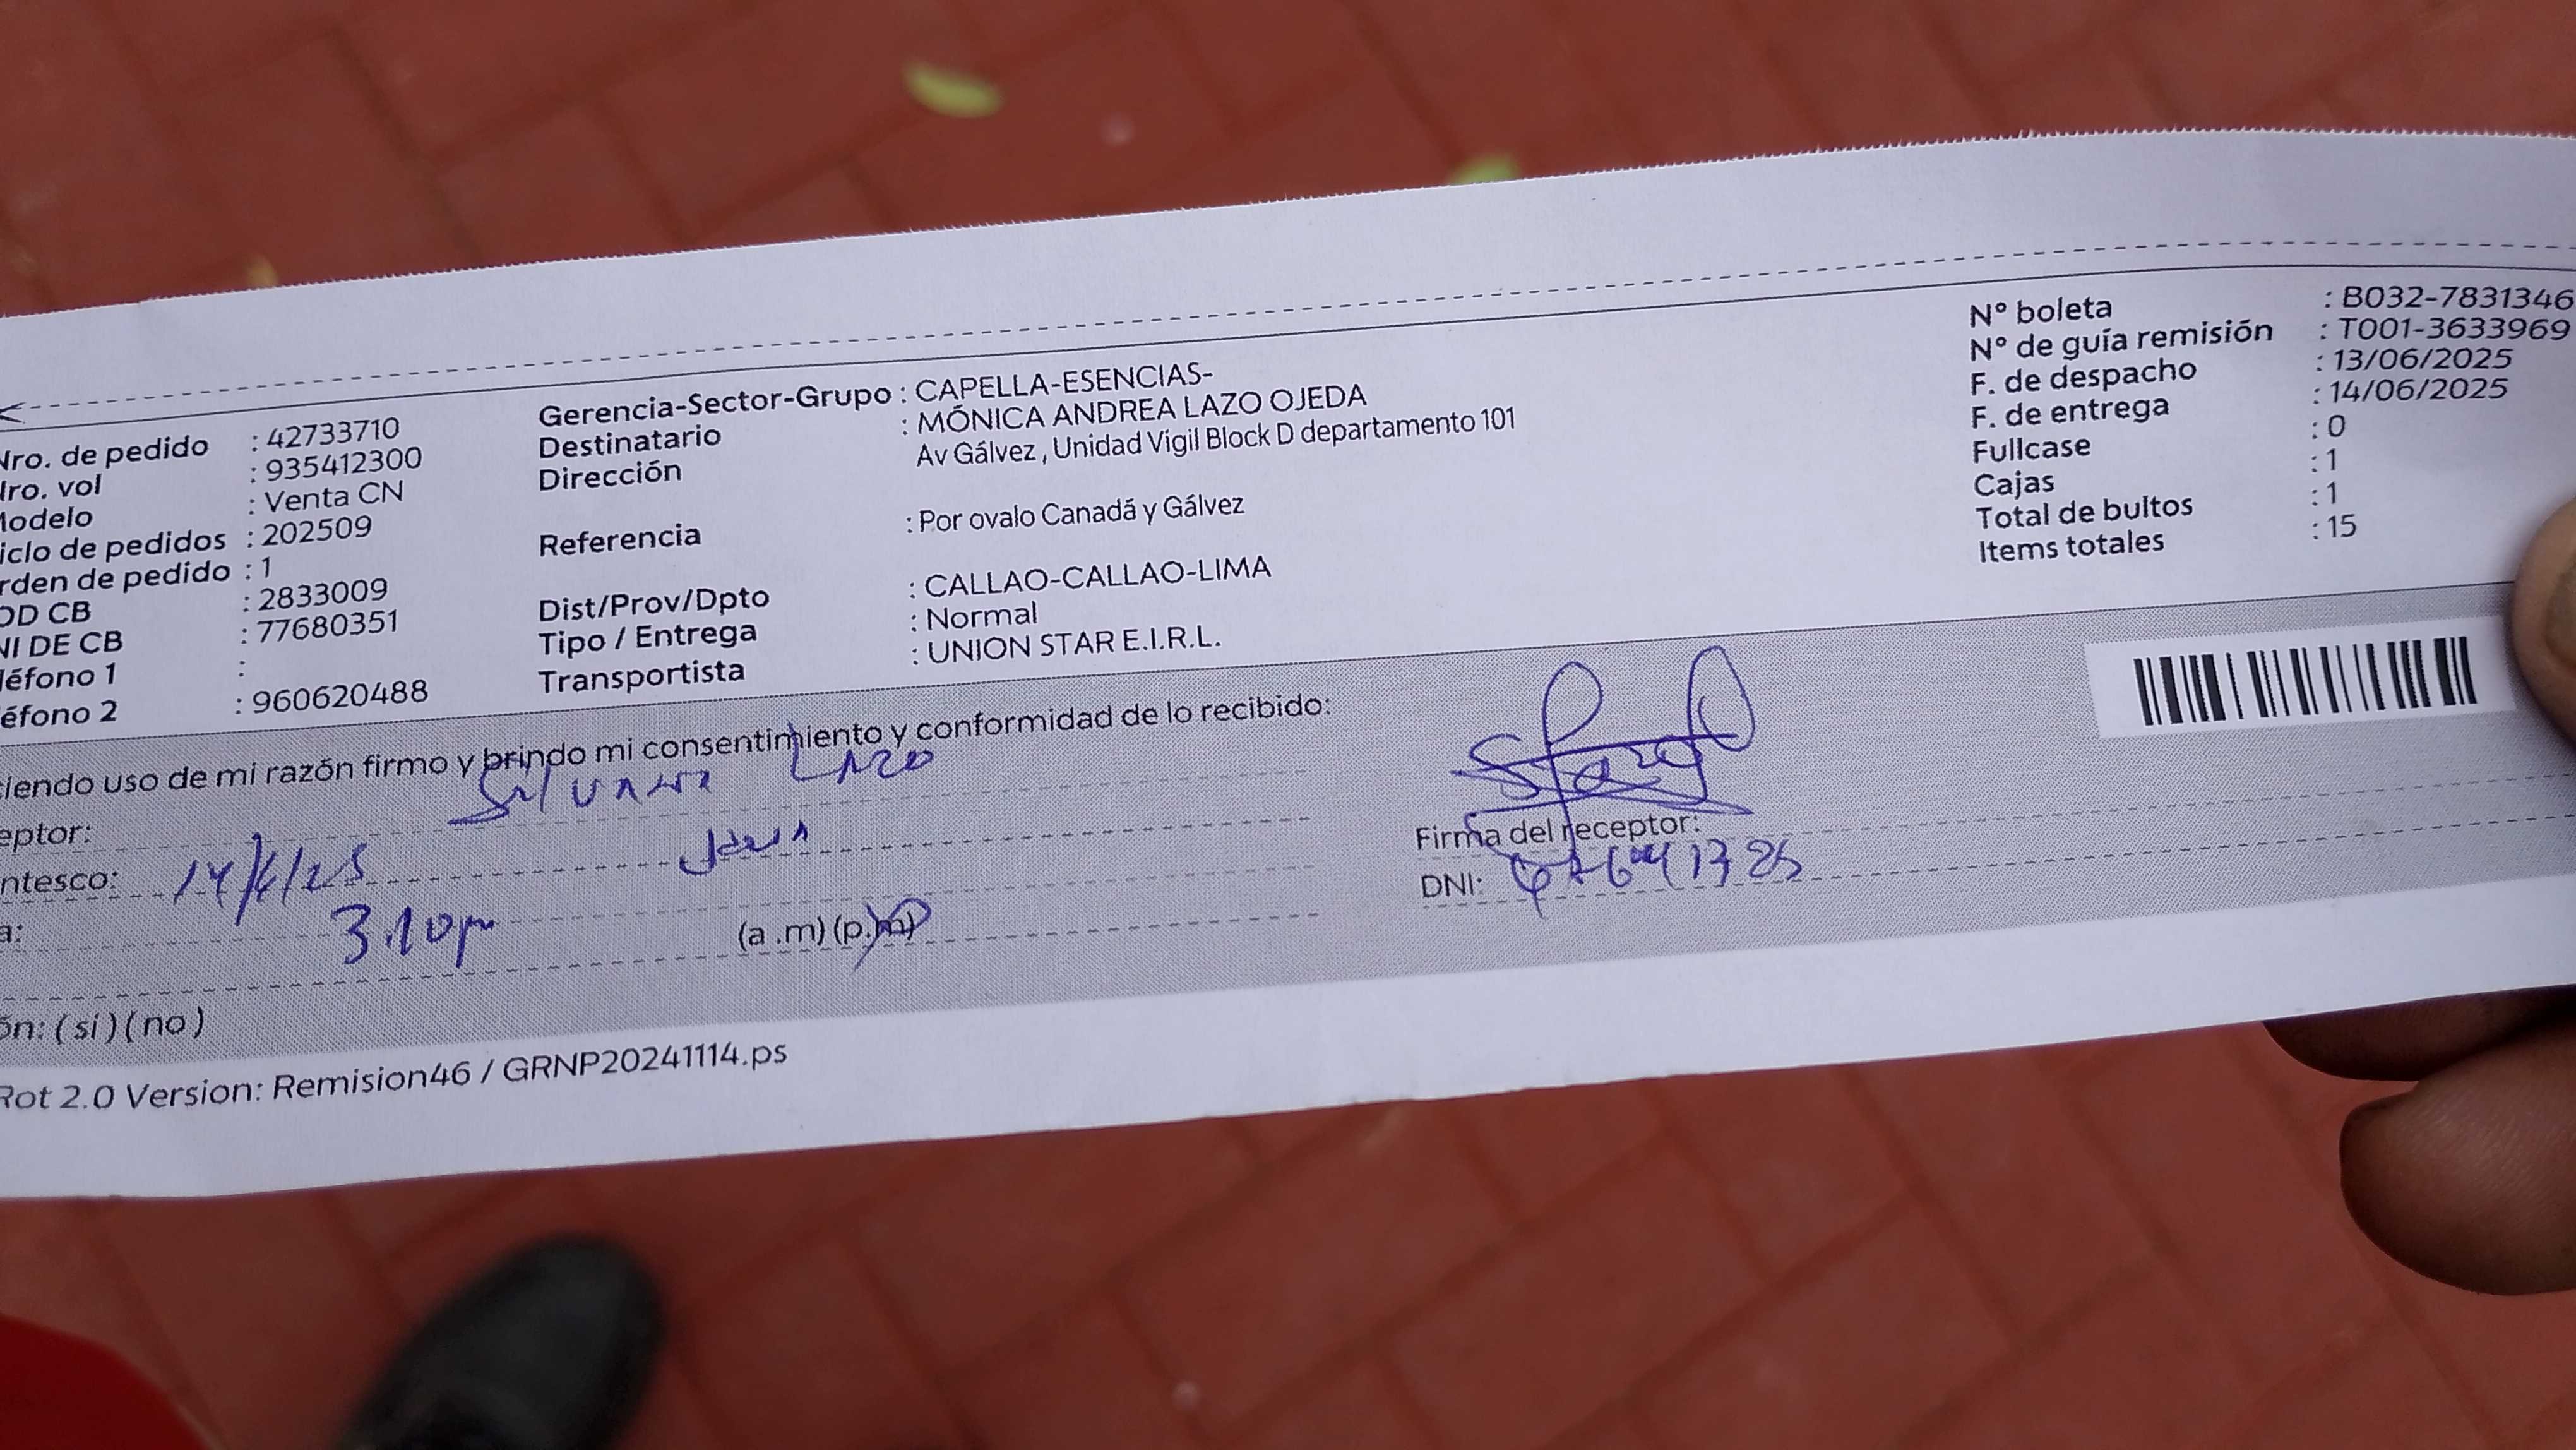 Nro. de pedido : 42733710
Nro. vol : 935412300
Modelo : Venta CN
iclo de pedidos : 202509
rden de pedido : 1
OD CB : 2833009
NI DE CB : 77680351
léfono 1 :
éfono 2 : 960620488
Gerencia-Sector-Grupo : CAPELLA-ESENCIAS-
Destinatario : MÓNICA ANDREA LAZO OJEDA
Dirección Av Gálvez , Unidad Vigil Block D departamento 101
Referencia : Por ovalo Canadá y Gálvez
Dist/Prov/Dpto : CALLAO-CALLAO-LIMA
Tipo / Entrega : Normal
Transportista : UNION STAR E.I.R.L.
N° boleta : B032-7831346
N° de guía remisión : T001-3633969
F. de despacho : 13/06/2025
F. de entrega : 14/06/2025
Fullcase : 0
Cajas : 1
Total de bultos : 1
Items totales : 15
ciendo uso de mi razón firmo y brindo mi consentimiento y conformidad de lo recibido:
eptor: Silvana Lazo
ntesco: 14/6/25
a: 3.10pm (a .m) (p.m)
Firma del receptor:
DNI:
ón: ( si ) ( no )
Rot 2.0 Version: Remision46 / GRNP20241114.ps